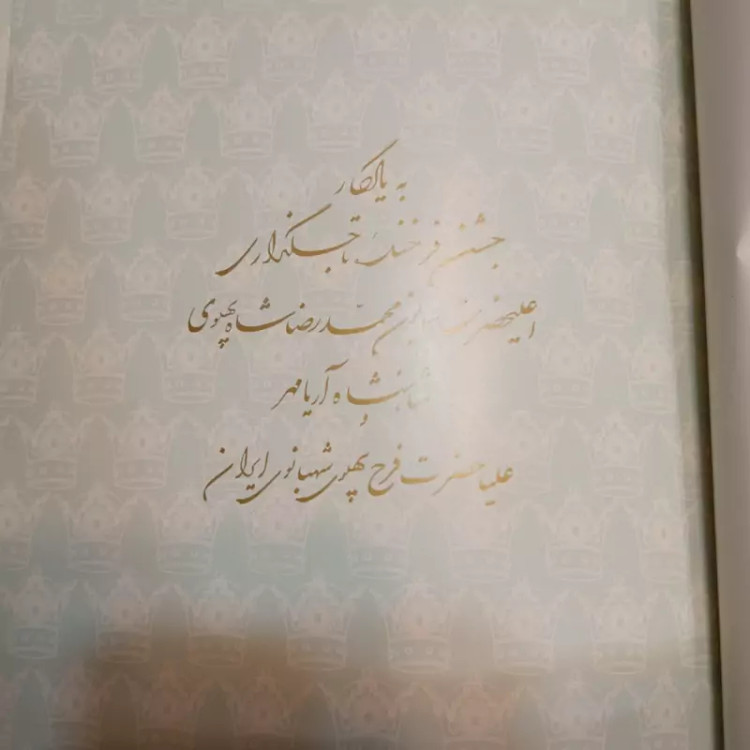 به یادگار
جشن فرخنده تاجگذاری
اعلیحضرت همایون محمدرضا شاه پهلوی
شاهنشاه آریامهر
و
علیاحضرت فرح پهلوی شهبانوی ایران